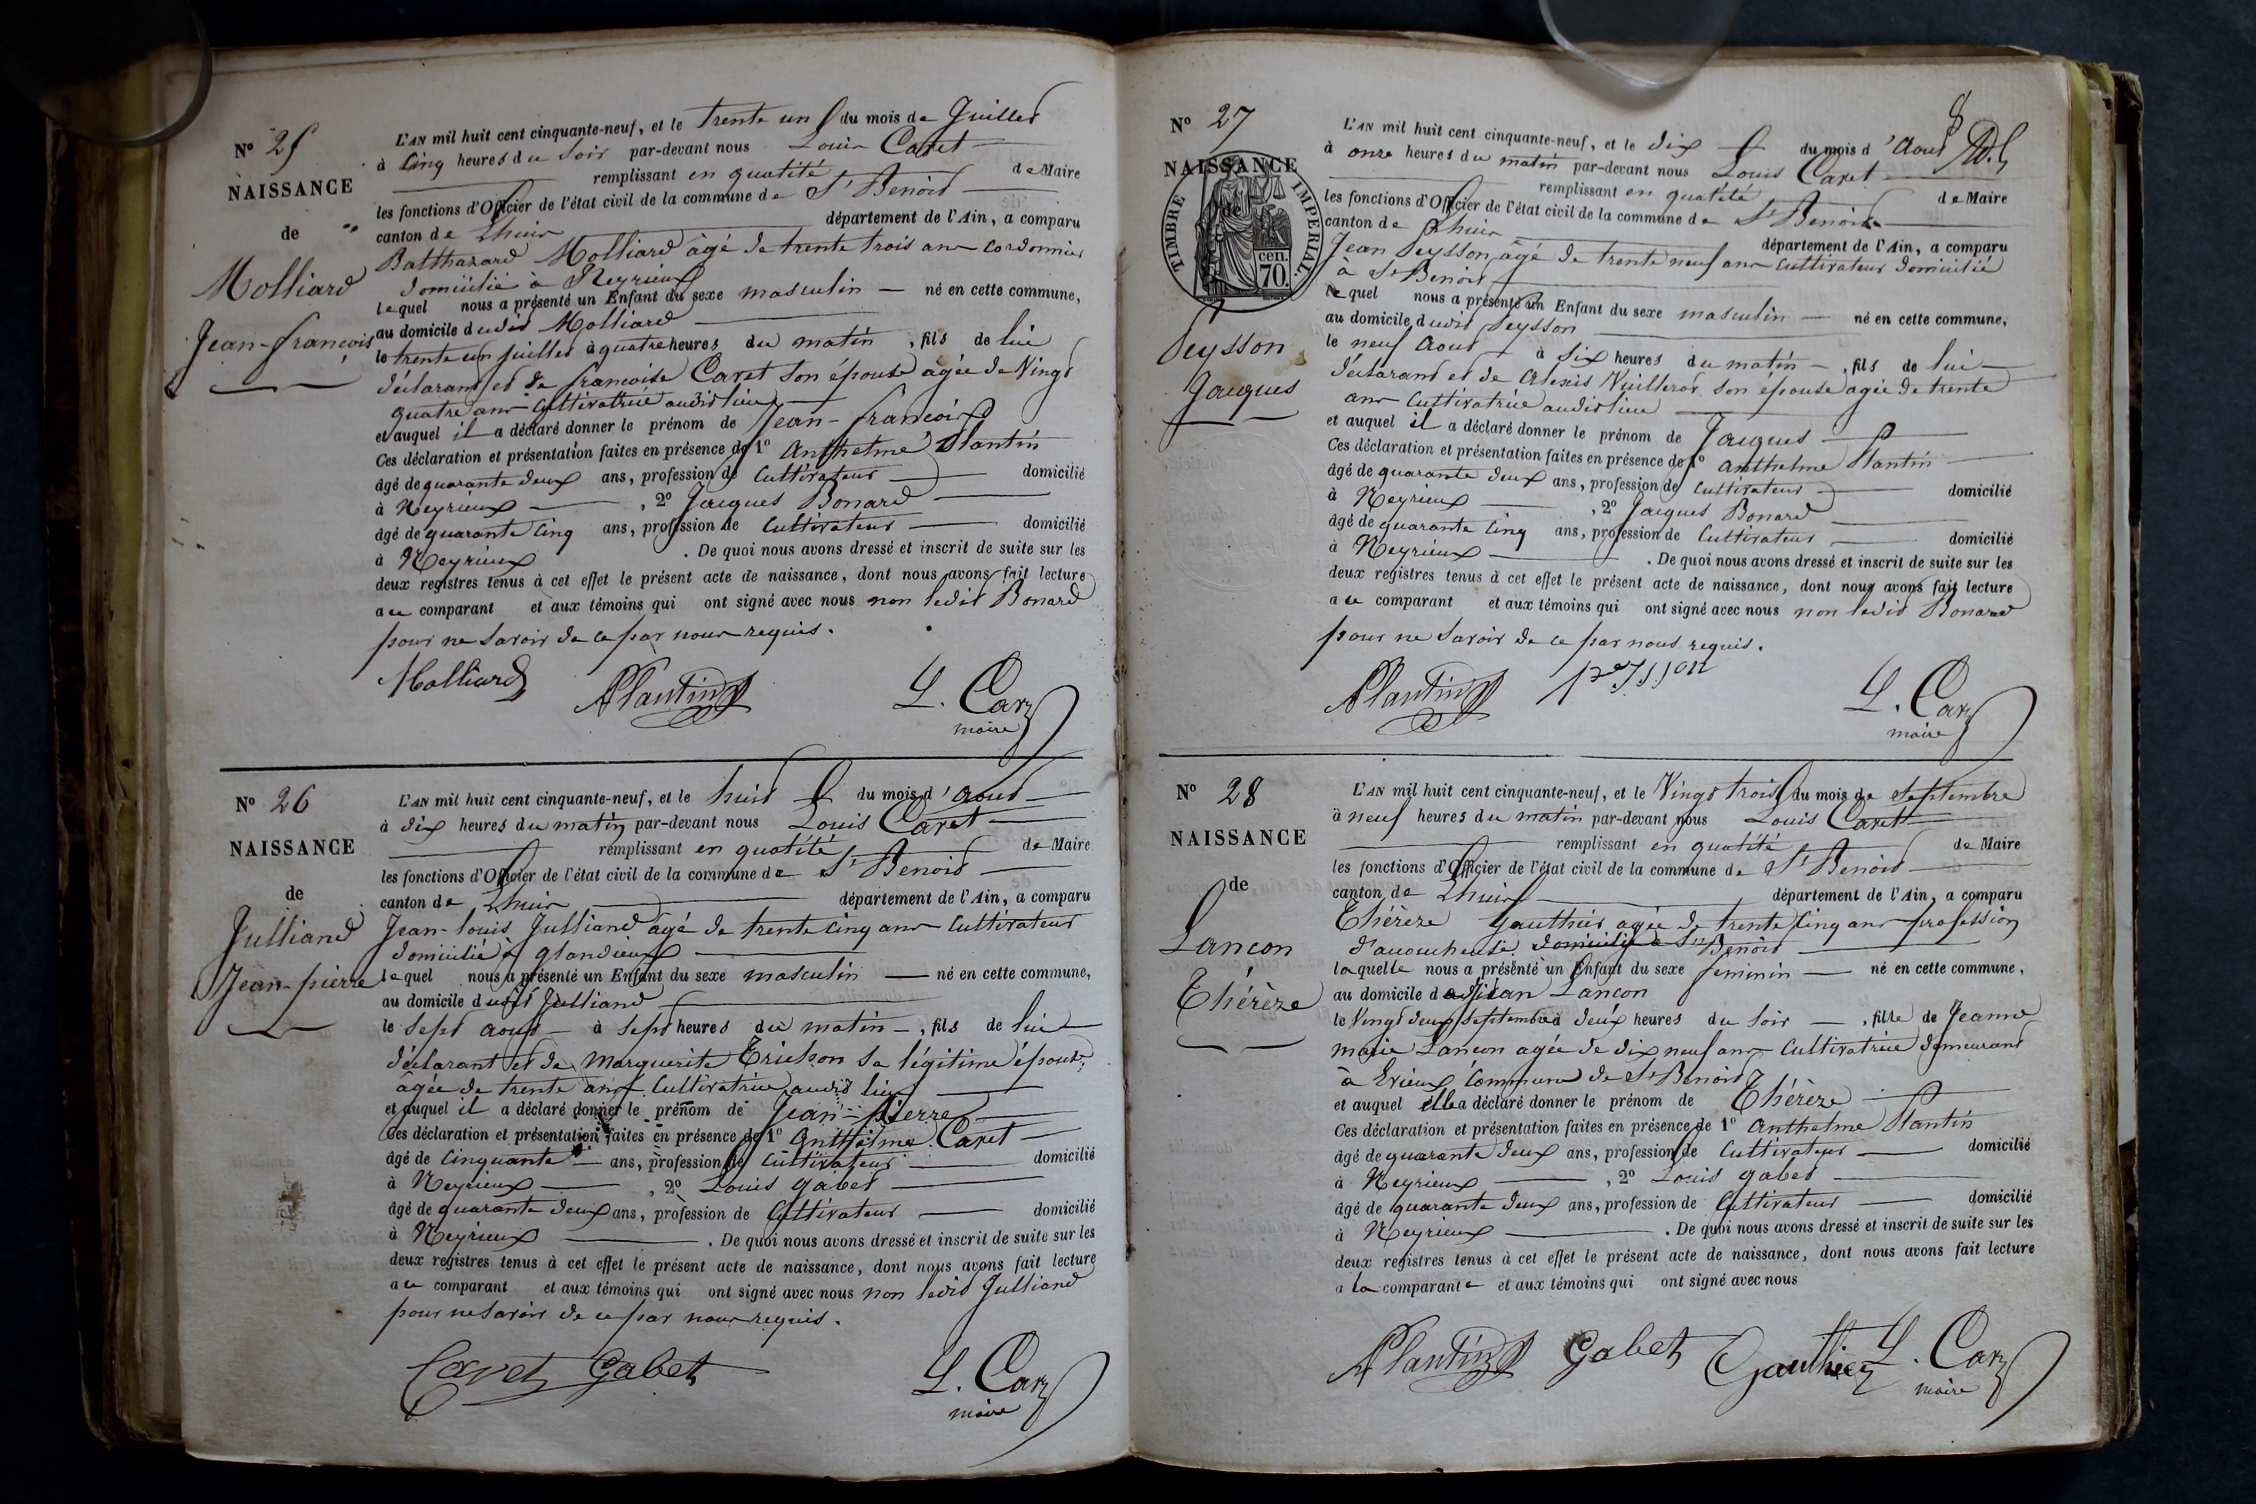 N° 25
NAISSANCE
de
Molliard
Jean-françois
L'AN mil huit cent cinquante-neuf, et le trente un du mois de Juillet
à Cinq heures du soir par-devant nous Louis Cavet
remplissant en qualité de Maire
les fonctions d'Officier de l'état civil de la commune de St Benoit
canton de Lhuis département de l'Ain, a comparu
Balthazard Molliard âgé de trente trois ans cordonnier
domicilié à Neyrieux
lequel nous a présenté un Enfant du sexe masculin né en cette commune,
au domicile dudit Molliard
le trente un juillet à quatre heures du matin, fils de lui
déclarant et de françoise Cavet son épouse agée de Vingt
quatre ans Cultivatrice audit lieu
et auquel il a déclaré donner le prénom de Jean-françois
Ces déclaration et présentation faites en présence de 1° Anthelme Plantin
âgé de quarante deux ans, profession de Cultivateur domicilié
à Neyrieux, 2° Jacques Bonard
âgé de quarante cinq ans, profession de Cultivateur domicilié
à Neyrieux. De quoi nous avons dressé et inscrit de suite sur les
deux registres tenus à cet effet le présent acte de naissance, dont nous avons fait lecture
au comparant et aux témoins qui ont signé avec nous non ledit Bonard
pour ne savoir de ce par nous requis.
Molliard Plantin L. Cavet
maire
N° 26
NAISSANCE
de
Julliand
Jean-pierre
L'AN mil huit cent cinquante-neuf, et le huit du mois d'Aout
à dix heures du matin par-devant nous Louis Cavet
remplissant en qualité de Maire
les fonctions d'Officier de l'état civil de la commune de St Benoit
canton de Lhuis département de l'Ain, a comparu
Jean-louis Julliand agé de trente cinq ans Cultivateur
domicilié à glandieux
lequel nous a présenté un Enfant du sexe masculin né en cette commune,
au domicile dudit Julliand
le sept aout à sept heures du matin, fils de lui
déclarant et de Marguerite sa légitime épouse
agée de trente ans Cultivatrice audit lieu
et auquel il a déclaré donner le prénom de Jean-pierre
Ces déclaration et présentation faites en présence de 1° Anthelme Cavet
âgé de cinquante ans, profession de Cultivateur domicilié
à Neyrieux, 2° Louis gabet
âgé de quarante deux ans, profession de Cultivateur domicilié
à Neyrieux. De quoi nous avons dressé et inscrit de suite sur les
deux registres tenus à cet effet le présent acte de naissance, dont nous avons fait lecture
au comparant et aux témoins qui ont signé avec nous non ledit Julliand
pour ne savoir de ce par nous requis.
Cavet Gabet L. Cavet
maire
8
N° 27
NAISSANCE
de
TIMBRE IMPERIAL.
cen.
70.
Peysson
Jacques
L'AN mil huit cent cinquante-neuf, et le dix du mois d'Aout
à onze heures du matin par-devant nous Louis Cavet
remplissant en qualité de Maire
les fonctions d'Officier de l'état civil de la commune de St Benoit
canton de Lhuis département de l'Ain, a comparu
Jean Peysson, âgé de trente neuf ans Cultivateur domicilié
à St Benoit
lequel nous a présenté un Enfant du sexe masculin né en cette commune,
au domicile dudit Peysson
le neuf Aout à six heures du matin, fils de lui
déclarant et de Alexis Vuillerod son épouse agée de trente
ans Cultivatrice audit lieu
et auquel il a déclaré donner le prénom de Jacques
Ces déclaration et présentation faites en présence de 1° anthelme Plantin
âgé de quarante deux ans, profession de Cultivateur domicilié
à Neyrieux, 2° Jacques Bonard
âgé de quarante cinq ans, profession de Cultivateur domicilié
à Neyrieux. De quoi nous avons dressé et inscrit de suite sur les
deux registres tenus à cet effet le présent acte de naissance, dont nous avons fait lecture
au comparant et aux témoins qui ont signé avec nous non ledit Bonard
pour ne savoir de ce par nous requis.
Plantin peysson L. Cavet
maire
N° 28
NAISSANCE
de
Lancon
Thérèze
L'AN mil huit cent cinquante-neuf, et le Vingt trois du mois de septembre
à neuf heures du matin par-devant nous Louis Cavet
remplissant en qualité de Maire
les fonctions d'Officier de l'état civil de la commune de St Benoit
canton de Lhuis département de l'Ain, a comparu
Thérèze Gauthier agée de trente cinq ans profession
d'accoucheuse domiciliée à St Benoit
laquelle nous a présenté un Enfant du sexe feminin né en cette commune,
au domicile de Jean Lancon
le Vingt deux septembre à deux heures du soir, fille de Jeanne
marie Lancon agée de dix neuf ans Cultivatrice demeurant
à Evieux Commune de St Benoit
et auquel elle a déclaré donner le prénom de Thérèze
Ces déclaration et présentation faites en présence de 1° anthelme Plantin
âgé de quarante deux ans, profession de Cultivateur domicilié
à Neyrieux, 2° Louis gabet
âgé de quarante deux ans, profession de Cultivateur domicilié
à Neyrieux. De quoi nous avons dressé et inscrit de suite sur les
deux registres tenus à cet effet le présent acte de naissance, dont nous avons fait lecture
a la comparante et aux témoins qui ont signé avec nous
Plantin Gabet Gauthier L. Cavet
maire